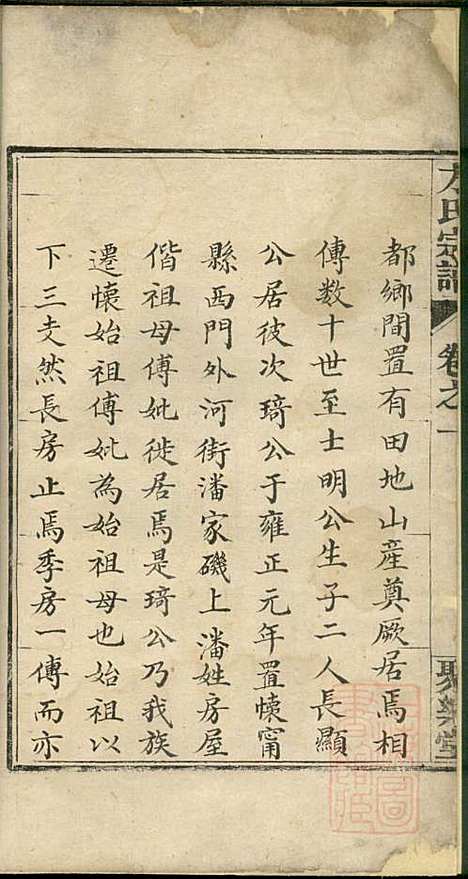 方氏宗譜
卷之一
聚樂堂
都鄉間置有田地山產奠厥居焉相
傳数十世至士明公生子二人長顯
公居彼次琦公于雍正元年置懷甯
縣西門外河街潘家磯上潘姓房屋
偕祖母傅妣徙居焉是琦公乃我族
遷懷始祖傅妣為始祖母也始祖以
下三支然長房止焉季房一傳而亦